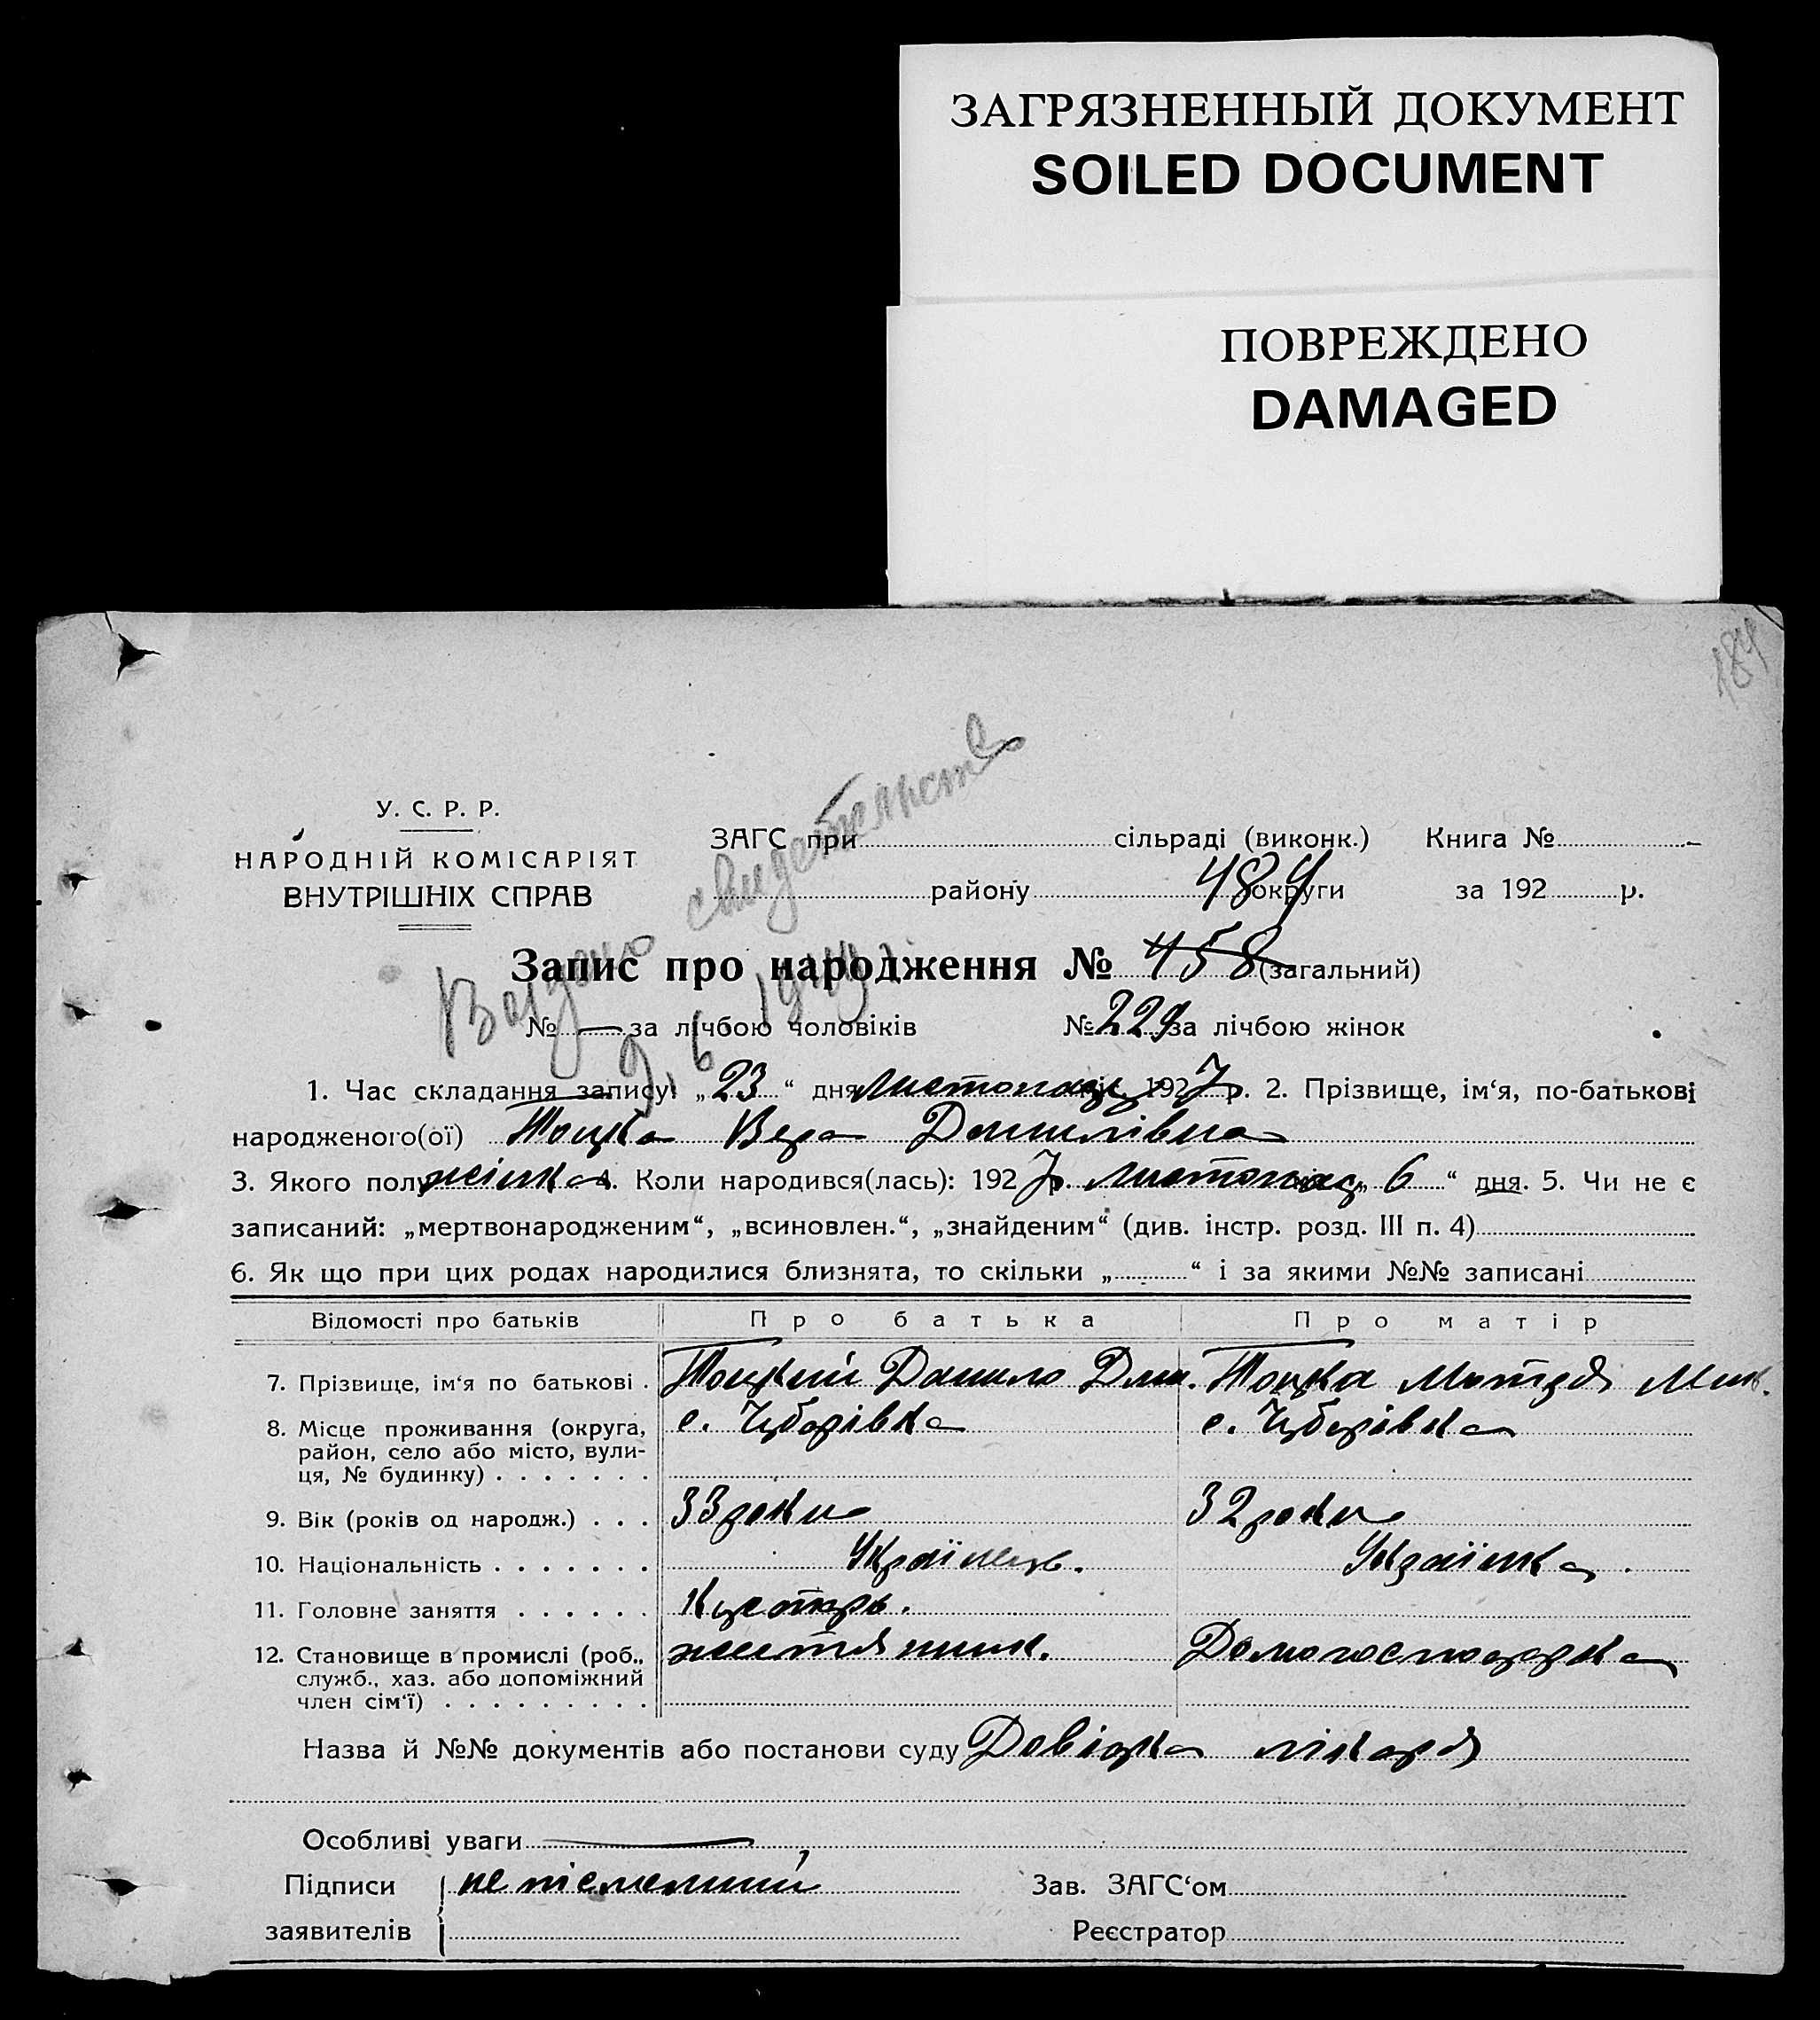 ЗАГРЯЗНЕННЫЙ ДОКУМЕНТ
SOILED DOCUMENT
ПОВРЕЖДЕНО
DAMAGED
У. С. Р. Р.
НАРОДНІЙ КОМІСАРІЯТ
ВНУТРІШНІХ СПРАВ
ЗАГС при сільраді (виконк.) Книга №
району округи за 192 р.
484
Выдано свидетельство
Запис про народження № 458 (загальний)
№ — за лічбою чоловіків № 229 за лічбою жінок
1. Час складання запису „23“ дня листопад 1927 р. 2. Прізвище, ім‘я, по-батькові
народженого(ої) Тоцка Вера Данилівна
3. Якого полу жінка 4. Коли народився(лась): 1927 р. листопад „6“ дня. 5. Чи не є
записаний: „мертвонародженим“, „всиновлен.“, „знайденим“ (див. інстр. розд. III п. 4)
6. Як що при цих родах народилися близнята, то скільки „ “ і за якими №№ записані
Відомості про батьків Про батька Про матір
7. Прізвище, ім‘я по батькові . Тоцкий Данило Дми. Тоцка Мотря Мик.
8. Місце проживання (округа, с. Чубарівка с. Чубарівка
район, село або місто, вули-
ця, № будинку) . . . . . . .
9. Вік (років од народж.) . . . 33 роки 32 роки
10. Національність . . . . . . . Українець. Українка.
11. Головне заняття . . . . . . Кустарь.
12. Становище в промислі (роб., жестяник. Домогосподарка
служб., хаз. або допоміжний
член сім‘ї) . . . . . . . . .
Назва й №№ документів або постанови суду Довідка лікаря
Особливі уваги —
Підписи не пісменний Зав. ЗАГС‘ом
заявителів Реєстратор